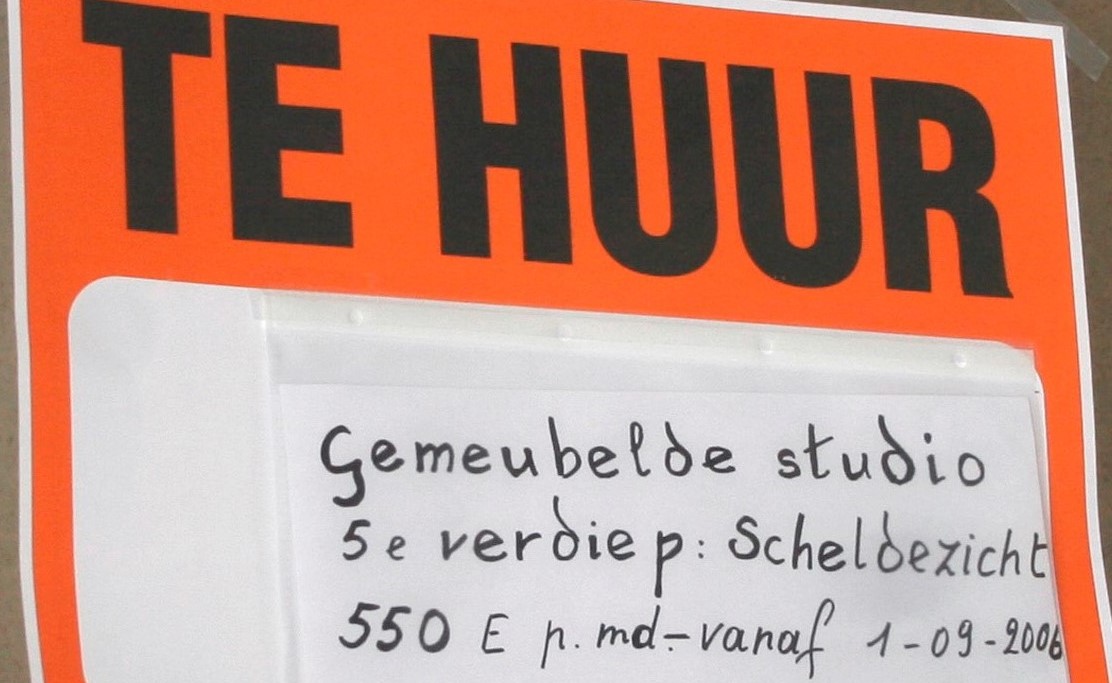 TE HUUR
Gemeubelde studio
5e verdiep: Scheldezicht
550 E p. md.-vanaf 1-09-2006